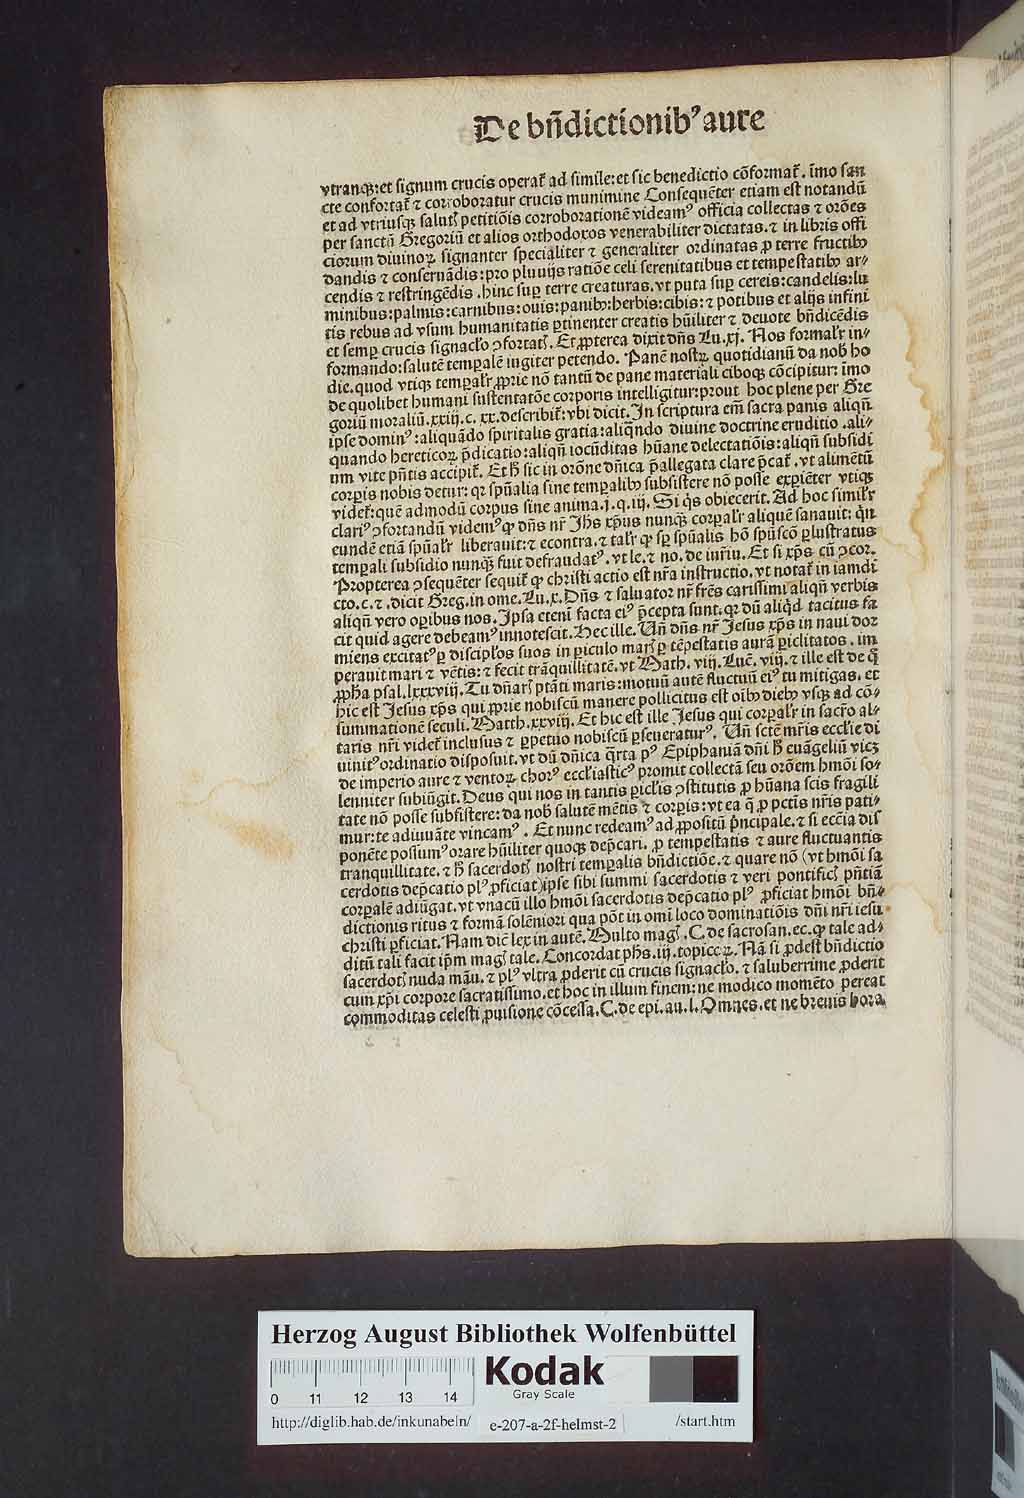 De bn̄dictionibꝰ aure
vtranqꝫ: et signum crucis operat̄ ad simile: et sic benedictio cōformat̄. īmo san
cte confortat̄ ⁊ corroboratur crucis munimine Consequēter etiam est notandū
et ad vtriusqꝫ salutꝭ petitiōis corroborationē videamꝰ officia collectas ⁊ orōes
per sanctū Gregoriū et alios orthodoxos venerabiliter dictatas. ⁊ in libris offi
ciorum diuinoꝝ signanter specialiter ⁊ generaliter ordinatas ꝓ terre fructibꝫ
dandis ⁊ conseruādis: pro pluuijs ratiōe celi serenitatibus et tempestatibꝫ ar⸗
cendis ⁊ restringēdis. hinc suꝑ terre creaturas. vt puta suꝑ cereis: candelis: lu
minibus: palmis: carnibus: ouis: panibꝫ: herbis: cibis: ⁊ potibus et alijs infini
tis rebus ad vsum humanitatis ꝑtinenter creatis hūiliter ⁊ deuote bn̄dicēdis
et semꝑ crucis signacl'o ꝯfortatꝭ. Et ꝓpterea dixit dn̄s Lu. xj. Nos formal'r in⸗
formando: salutē temꝑalē iugiter petendo. Panē nostꝝ quotidianū da nob̄ ho
die. quod vtiqꝫ temꝑal'r ꝓprie nō tantū de pane materiali ciboqꝫ cōcipitur: īmo
de quolibet humani sustentatōe corporis intelligitur: prout hoc plene per Gre
goriū moraliū. xxiij. c. xx. describit̄: vbi dicit. In scriptura em̄ sacra panis aliqn̄
ipse dominꝰ: aliquādo spiritalis gratia: aliqn̄do diuine doctrine eruditio. ali⸗
quando hereticoꝝ p̄dicatio: aliqn̄ iocūditas hūane delectatiōis: aliqn̄ subsidi
um vite pn̄tis accipit̄. Et h̄ sic in orōne dn̄ica p̄allegata clare p̄cat̄. vt alimētū
corꝑis nobis detur: qꝛ spūalia sine temꝑalibꝫ subsistere nō posse exꝑiēter vtiqꝫ
videt̄: quē admodū corpus sine anima. j. q. iij. Si q̄s obiecerit. Ad hoc simil'r
clariꝰ ꝯfortandū videmꝰ ꝙ dn̄s nr̄ Jh̄s xp̄us nunqꝫ corꝑal'r aliquē sanauit: qn̄
eundē etiā spūal'r liberauit: ⁊ econtra. ⁊ tal'r ꝙ sꝑ spūalis hō spūscō ꝑlustratus
temꝑali subsidio nunqꝫ fuit defraudatꝰ. vt le. ⁊ no. de iur̄iu. Et si xp̄s cū ꝯcor.
Propterea ꝯsequēter sequit̄ ꝙ christi actio est nr̄a instructio. vt notat̄ in iamdi
cto. c. ⁊. dicit Greg. in ome. Lu. x. Dn̄s ⁊ saluator nr̄ fr̄es carissimi aliqn̄ verbis
aliqn̄ vero oꝑibus nos. Ipsa etenī facta eiꝰ p̄cepta sunt. qꝛ dū aliq̄d tacitus fa
cit quid agere debeamꝰ innotescit. Hec ille. Un̄ dn̄s nr̄ Jesus xp̄s in naui dor
miens excitatꝰ ꝑ discipl'os suos in ꝑiculo marꝭ ꝑ tēpestatis aurā ꝑiclitatos. im
perauit mari ⁊ vētis: ⁊ fecit trāquillitatē. vt Math. viij. Luc̄. viij. ⁊ ille est de q̄
ꝓph̄a psal. lxxxviij. Tu dn̄arꝭ ptāti maris: motuū autē fluctuū eiꝰ tu mitigas. et
hic est Jesus xp̄s qui ꝓprie nobiscū manere pollicitus est oībꝫ diebꝫ vsqꝫ ad cō⸗
summationē seculi. Matth. xxviij. Et hic est ille Jesus qui corꝑal'r in sacr̄o al⸗
taris nr̄i videt̄ inclusus ⁊ ꝑpetuo nobiscū ꝑseueraturꝰ. Un̄ sctē mr̄is eccl'ie di
uinitꝰ ordinatio disposuit. vt dū dn̄ica q̄rta pꝰ Epiphaniā dn̄i h̄ euāgeliū vicꝫ
de imperio aure ⁊ ventoꝝ chorꝰ eccl'iasticꝰ promit collectā seu orōem hmōi so⸗
lenniter subiūgit. Deus qui nos in tantis ꝑicl'is ꝯstitutis ꝓ hūana scis fragili
tate nō posse subsistere: da nob̄ salutē mētis ⁊ corꝑis: vt ea q̄ ꝓ pctīs nr̄is pati⸗
mur: te adiuuāte vincamꝰ. Et nunc redeamꝰ ad ꝓpositū p̄ncipale. ⁊ si ecc̄ia dis
ponēte possumꝰ orare hūiliter quoqꝫ dep̄cari. ꝓ tempestatis ⁊ aure fluctuantis
tranquillitate. ⁊ h̄ sacerdotꝭ nostri temꝑalis bn̄dictiōe. ⁊ quare nō (vt hmōi sa
cerdotis dep̄catio plꝰ ꝓficiat) ipse sibi summi sacerdotis ⁊ veri pontificꝭ pn̄tiā
corꝑalē adiūgat. vt vnacū illo hmōi sacerdotis dep̄catio plꝰ ꝓficiat hmōi bn̄⸗
dictionis ritus ⁊ formā solēniori qua pōt in omī loco dominatiōis dn̄i nr̄i iesu
christi ꝑficiat. Nam dic̄ lex in autē. Multo magꝭ. C. de sacrosan. ec. ꝙ tale ad⸗
ditū tali facit ip̄m magꝭ tale. Concordat ph̄s. iij. topicoꝝ. Nā si ꝓdest bn̄dictio
sacerdotꝭ nuda manu. ⁊ plꝰ vltra ꝓderit cū crucis signacl'o. ⁊ saluberrime ꝓderit
cum xp̄i corpore sacratissimo. et hoc in illum finem: ne modico momēto pereat
commoditas celesti ꝓuisione cōcessa. C. de epi. au. l. Omnes. et ne breuis hora
Herzog August Bibliothek Wolfenbüttel
Kodak
Gray Scale
0 11 12 13 14
http://diglib.hab.de/inkunabeln/ e-207-a-2f-helmst-2 /start.htm